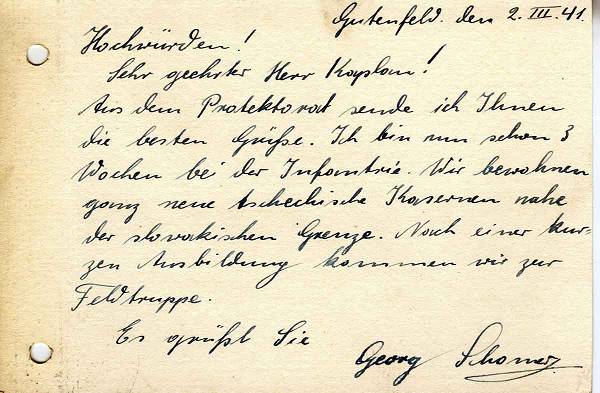 Gutenfeld. den 2. III. 41.
Hochwürden!
Sehr geehrter Herr Kaplan!
Aus dem Protektorat sende ich Ihnen
die besten Grüße. Ich bin nun schon 3
Wochen bei der Infantrie. Wir bewohnen
ganz neue tschechische Kasernen nahe
der slowakischen Grenze. Nach einer kur-
zen Ausbildung kommen wir zur
Feldtruppe.
Es grüßt Sie
Georg